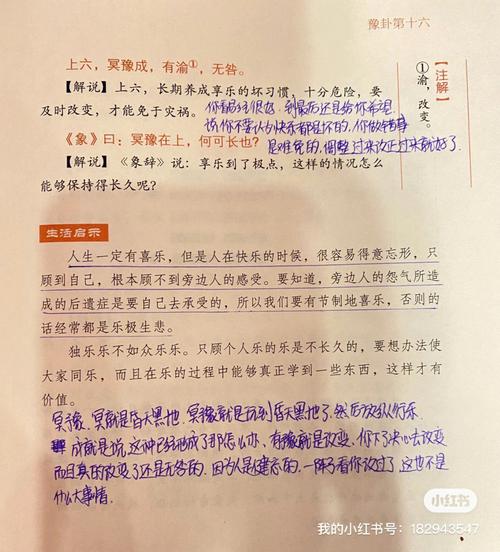 豫卦第十六
上六，冥豫成，有渝①，无咎。
【解说】上六，长期养成享乐的坏习惯，十分危险，要
及时改变，才能免于灾祸。
你看易经很好，到最后还是给你希望
《象》曰：冥豫在上，何可长也？
是难免的，调整过来改正过来就好了
【解说】《象辞》说：享乐到了极点，这样的情况怎么
能够保持得长久呢？
【注解】
①渝，改变。
生活启示
人生一定有喜乐，但是人在快乐的时候，很容易得意忘形，只
顾到自己，根本顾不到旁边人的感受。要知道，旁边人的怨气所造
成的后遗症是要自己去承受的，所以我们要有节制地喜乐，否则的
话经常都是乐极生悲。
独乐乐不如众乐乐。只顾个人乐的乐是不长久的，要想办法使
大家同乐，而且在乐的过程中能够真正学到一些东西，这样才有
价值。
冥豫，冥就是昏天黑地，冥豫就是玩到昏天黑地了，然后放纵行乐
成就是说这种已经形成了那怎么办，有渝就是改变，你下了决心去改变
而且真的改变了还是无咎的，因为人是健忘的，一阵子看你改过了，这也不是
什么大事情。
小红书
我的小红书号：182943547